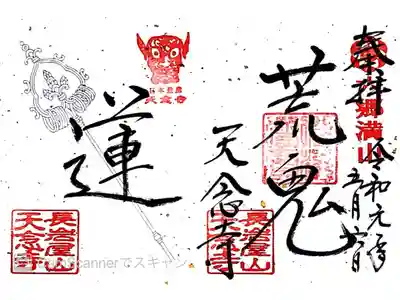 奉拝
六郷満山
令和元年五月六日
荒鬼
天念寺
長岩屋山
天念寺
天念寺
長岩屋山
天念寺
CamScannerでスキャン